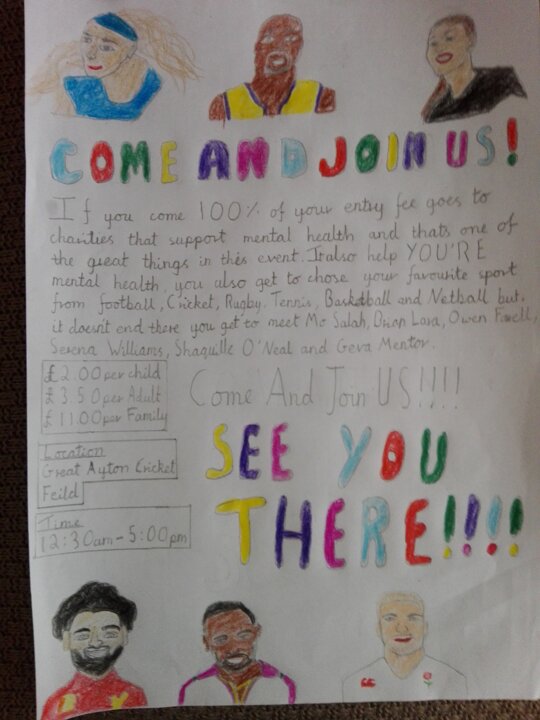 COME AND JOIN US!
If you come 100% of your entry fee goes to
charities that support mental health and thats one of
the great things in this event. It also help YOU'RE
mental health, you also get to chose your favourite sport
from football, Cricket, Rugby, Tennis, Basketball and Netball but
it doesn't end there you get to meet Mo Salah, Brian Lara, Owen Farell,
Serena Williams, Shaquille O'Neal and Geva Mentor.
£2.00 per child
£3.50 per Adult
£11.00 per Family
Come And Join US!!!!
Location
Great Ayton Cricket
Feild
SEE YOU
THERE!!!!
Time
12:30am-5:00pm